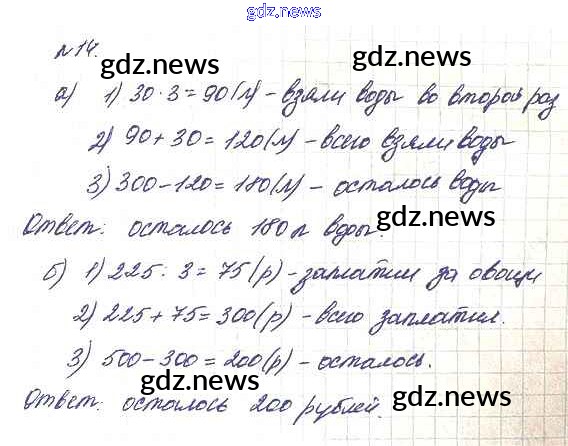 gdz.news
№14.
gdz.news
gdz.news
а) 1) 30·3=90(л) - взяли воды во второй раз
gdz.news
2) 90+30=120(л) - всего взяли воды
gdz.news
3) 300-120=180(л) - осталось воды
gdz.news
Ответ: осталось 180 л воды.
б) 1) 225:3=75(р) - заплатили за овощи
gdz.news
gdz.news
2) 225+75=300(р) - всего заплатил.
3) 500-300=200(р) - осталось.
gdz.news
gdz.news
Ответ: осталось 200 рублей.